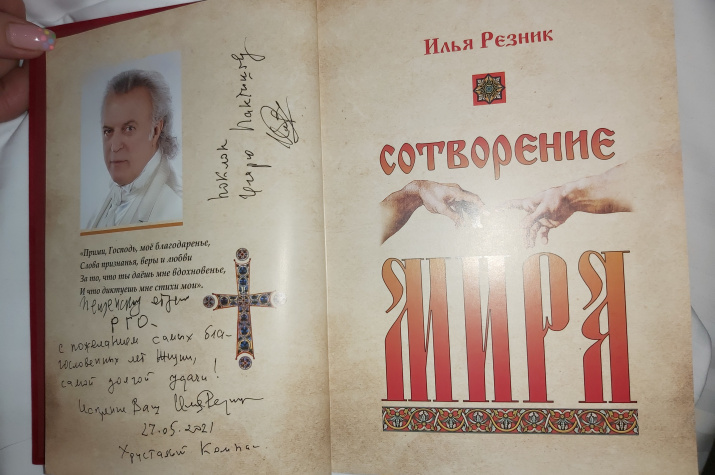 Поклон
Игорю Пактинову
«Прими, Господь, моё благодаренье,
Слова признанья, веры и любви
За то, что ты даёшь мне вдохновенье,
И что диктуешь мне стихи мои».
РГО-
с пожеланием самых бла-
гословенных лет жизни,
самой долгой удачи!
Искренне Ваш Илья Резник
27.05.2021
Хрустался Компа-
Илья Резник
СОТВОРЕНИЕ
МИРА